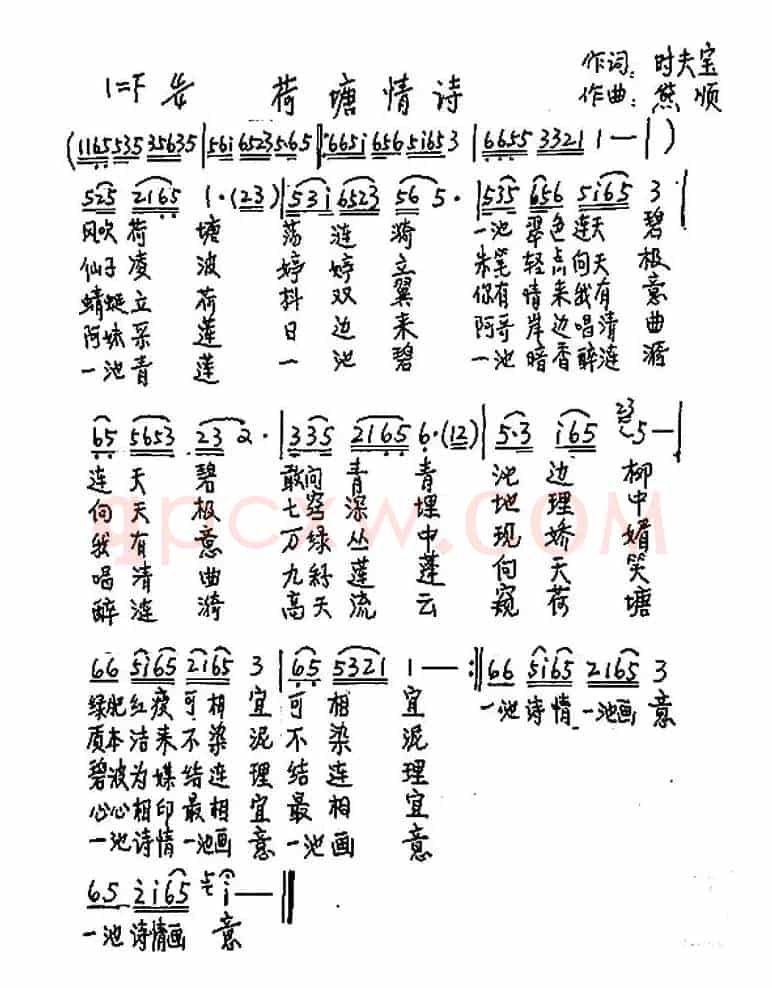 作词: 时夫宝
1=F 荷塘情诗 作曲: 熊顺
(1165 535 35635 | 56i 6523 565 |: 665i 656 5i653 | 6655 3321 1 — | )
525 2165 1·(23) | 53i 6523 56 5· | 535 656 5i65 3 |
风吹荷塘 荡涟漪 一池翠色连天碧
仙子凌波 婷婷立 朱笔轻点向天极
蜻蜓立荷 抖双翼 你有情来我有意
阿妹采莲 日边来 阿哥岸边唱清曲
一池青莲 一池碧 一池暗香醉涟漪
65 5653 23 2· | 3 35 2165 6·(12) | 5·3 i65 23 5 — |
连天碧 敢问青青 池边柳
向天极 七窍深埋 地理中
我有意 万绿丛中 现娇媚
唱清曲 九 莲蓬 向天笑
醉涟漪 高天流云 窥荷塘
66 5i65 2i65 3 | 65 5321 1 — — :‖ 66 5i65 2165 3
绿肥红瘦可相宜可相宜 一池诗情一池画意
质本洁来不染泥不染泥
碧波为媒结连理结连理
心心相印最相宜最相宜
一池诗情一池画意一池画意
65 2i65 i — ‖
一池诗情画意
qpcxw.COM